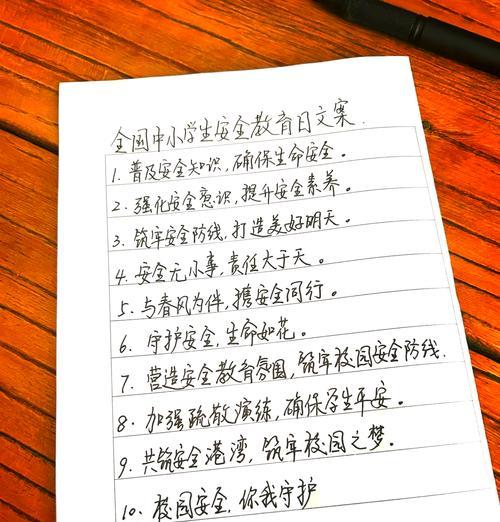 全国中小学生安全教育日文案.
1. 普及安全知识,确保生命安全。
2. 强化安全意识,提升安全素养。
3. 筑牢安全防线,打造美好明天。
4. 安全无小事,责任大于天。
5. 与春风为伴,携安全同行。
6. 守护安全,生命如花。
7. 营造安全教育氛围,筑牢校园安全防线.
8. 加强疏散演练,确保学生平安。
9. 共筑安全港湾,筑牢校园之梦。
10. 校园安全,你我守护